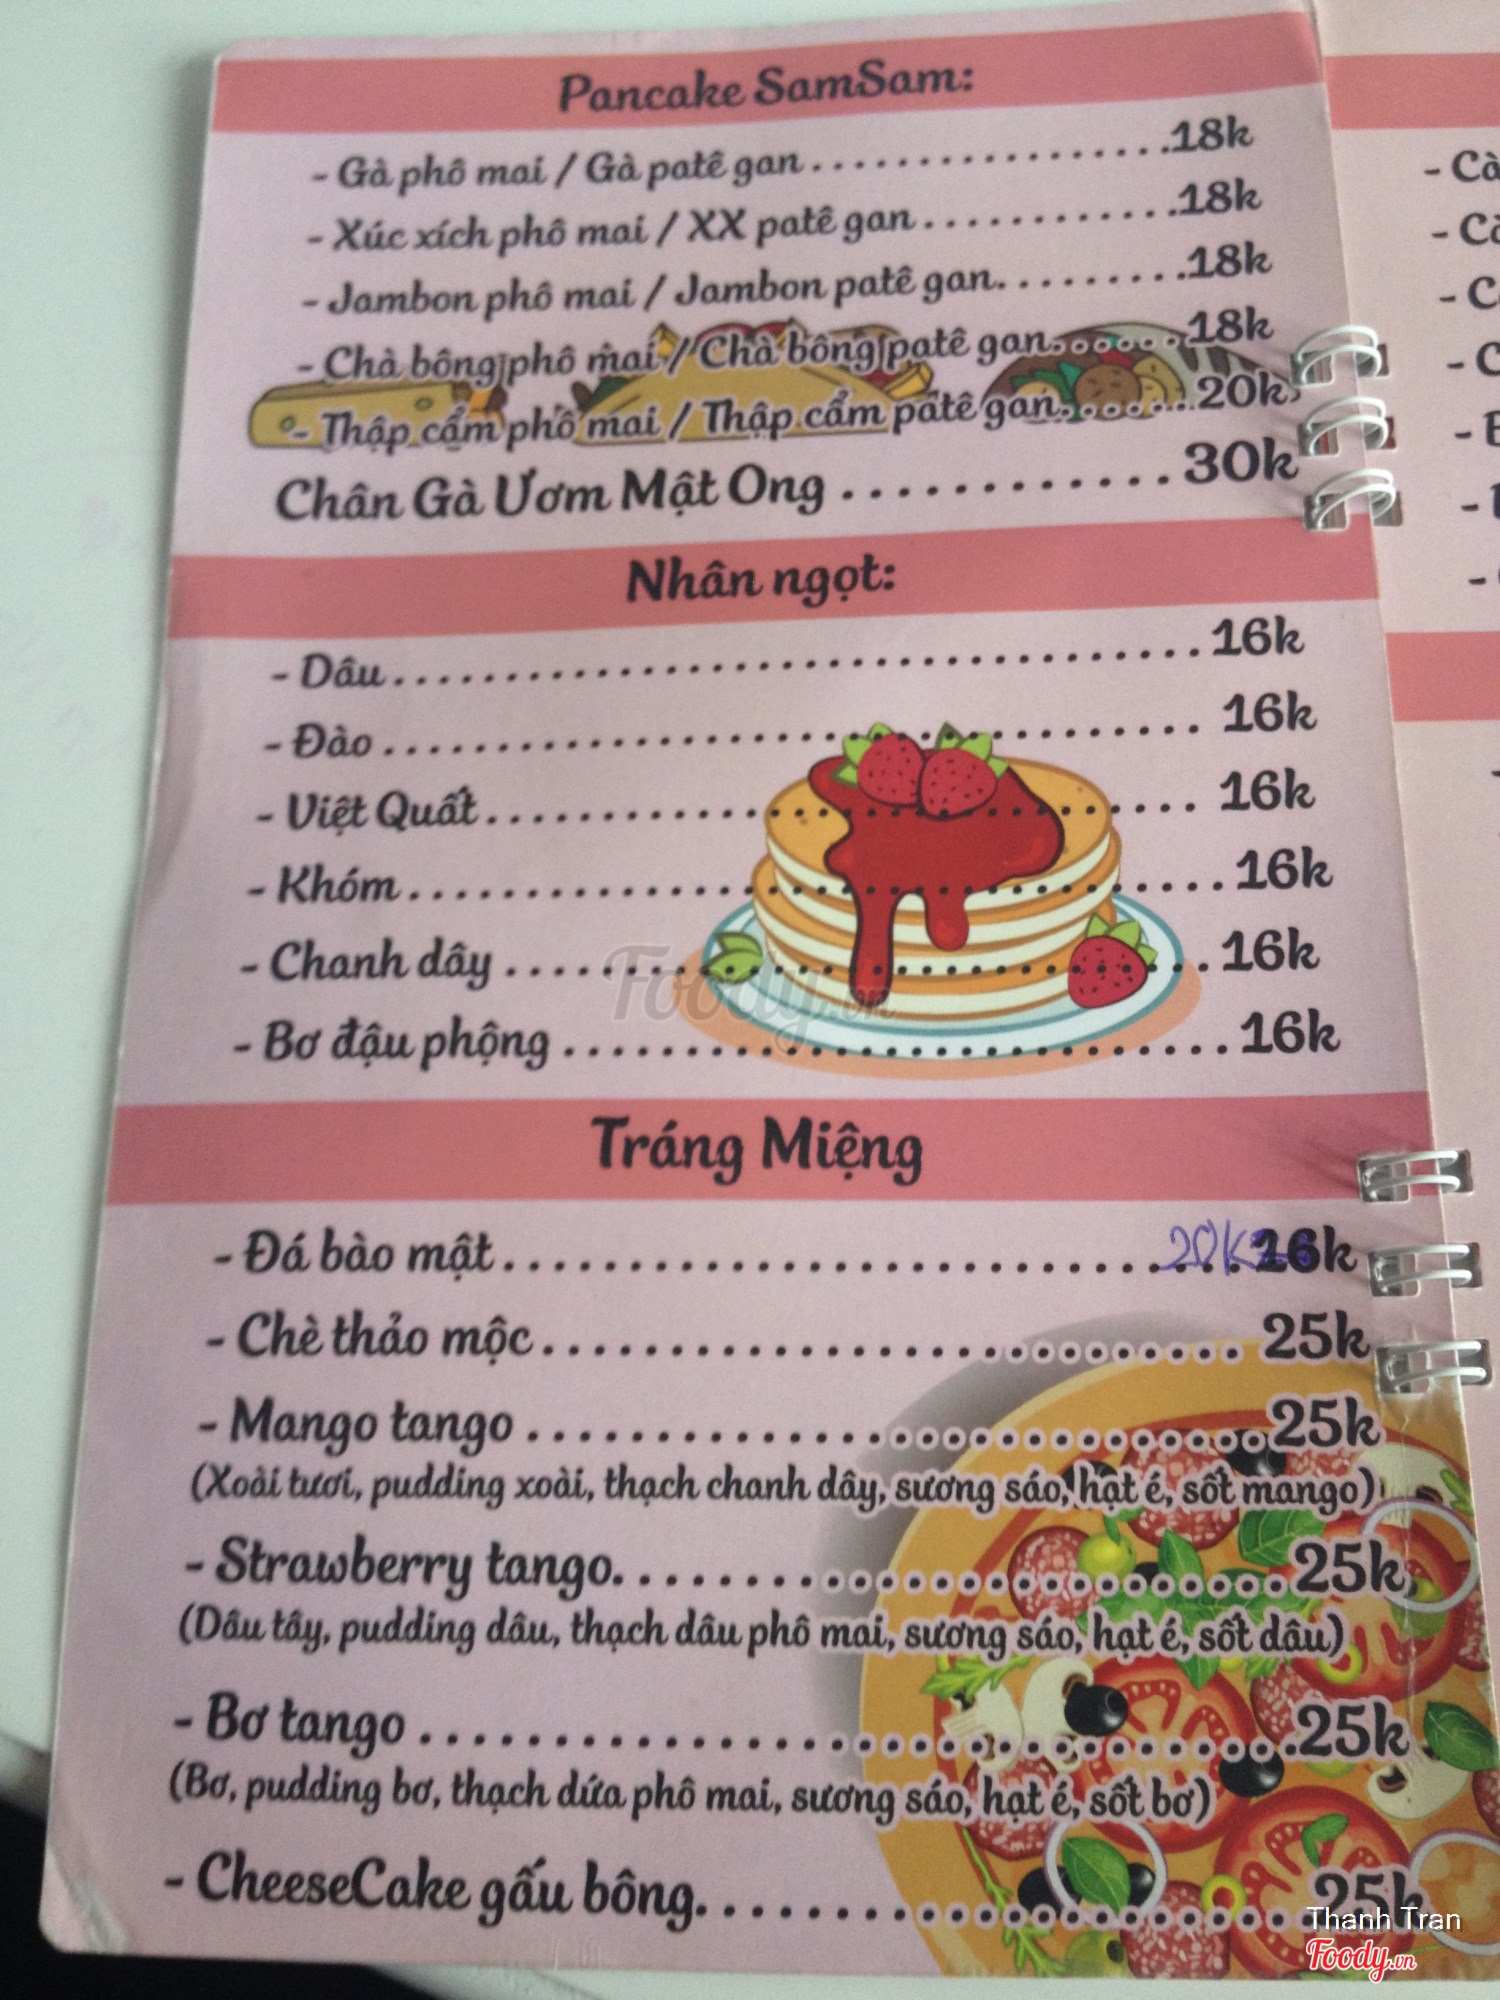 Pancake SamSam:
- Gà phô mai / Gà patê gan..................18k
- Xúc xích phô mai / XX patê gan............18k
- Jambon phô mai / Jambon patê gan.........18k
- Chà bông phô mai / Chà bông patê gan......18k
- Thập cẩm phô mai / Thập cẩm patê gan.......20k
Chân Gà Ươm Mật Ong ............ 30k
Nhân ngọt:
- Dâu.................................... 16k
- Đào .................................... 16k
- Việt Quất................................ 16k
- Khóm.................................... 16k
- Chanh dây ............................... 16k
- Bơ đậu phộng ............................. 16k
Tráng Miệng
- Đá bào mật................................. 16k 20K
- Chè thảo mộc............................... 25k
- Mango tango ................................25k
(Xoài tươi, pudding xoài, thạch chanh dây, sương sáo, hạt é, sốt mango)
- Strawberry tango..............................25k
(Dâu tây, pudding dâu, thạch dâu phô mai, sương sáo, hạt é, sốt dâu)
- Bơ tango .....................................25k
(Bơ, pudding bơ, thạch dứa phô mai, sương sáo, hạt é, sốt bơ)
- CheeseCake gấu bông...........................25k
Foody.vn
Thanh Tran
Foody.vn